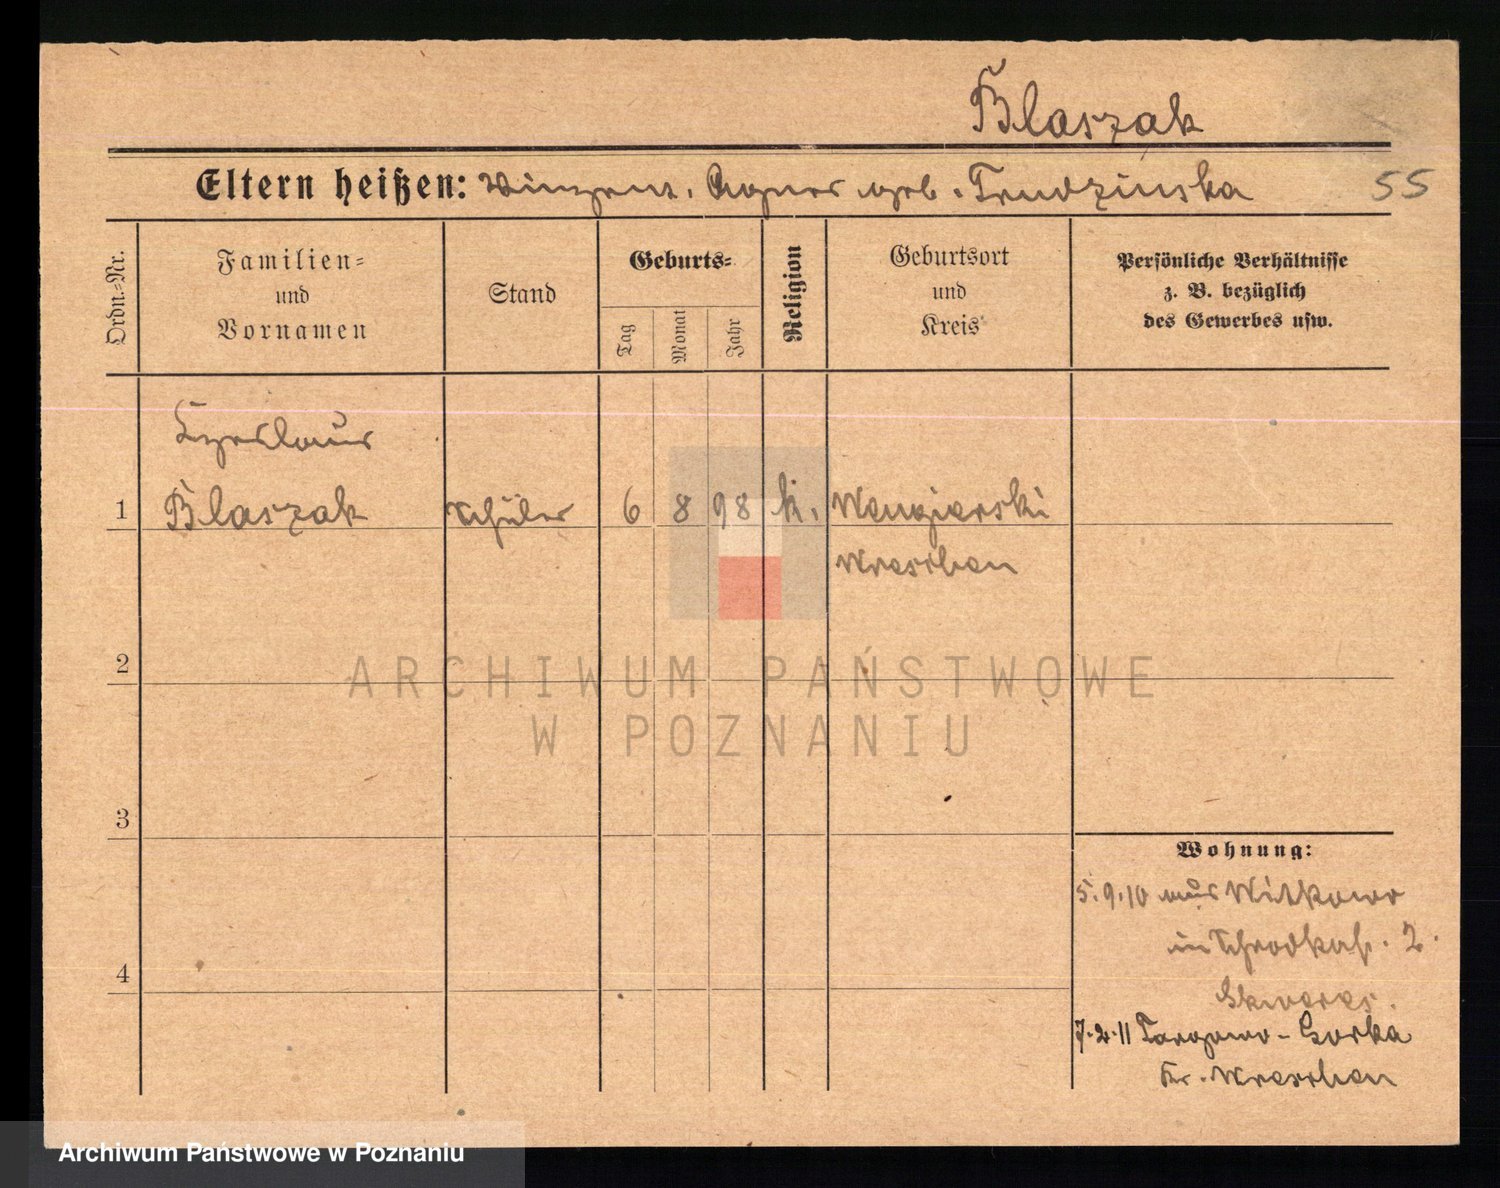 Blaszak
Eltern heißen: Vinzent, Agnes geb. Trudzinska
55
Ordn.-Nr.
Familien-
und
Vornamen
Stand
Geburts-
Tag
Monat
Jahr
Religion
Geburtsort
und
Kreis
Persönliche Verhältnisse
z. B. bezüglich
des Gewerbes usw.
Czeslaus
1 Blaszak Schüler 6 8 98 k. Wengierski
Wreschen
2
ARCHIWUM PAŃSTWOWE
W POZNANIU
3
Wohnung:
5.9.10 aus Witkowo
in Schrodkastr. 2.
4
7.2.11 Targowo-Gorka
Kr. Wreschen
Archiwum Państwowe w Poznaniu